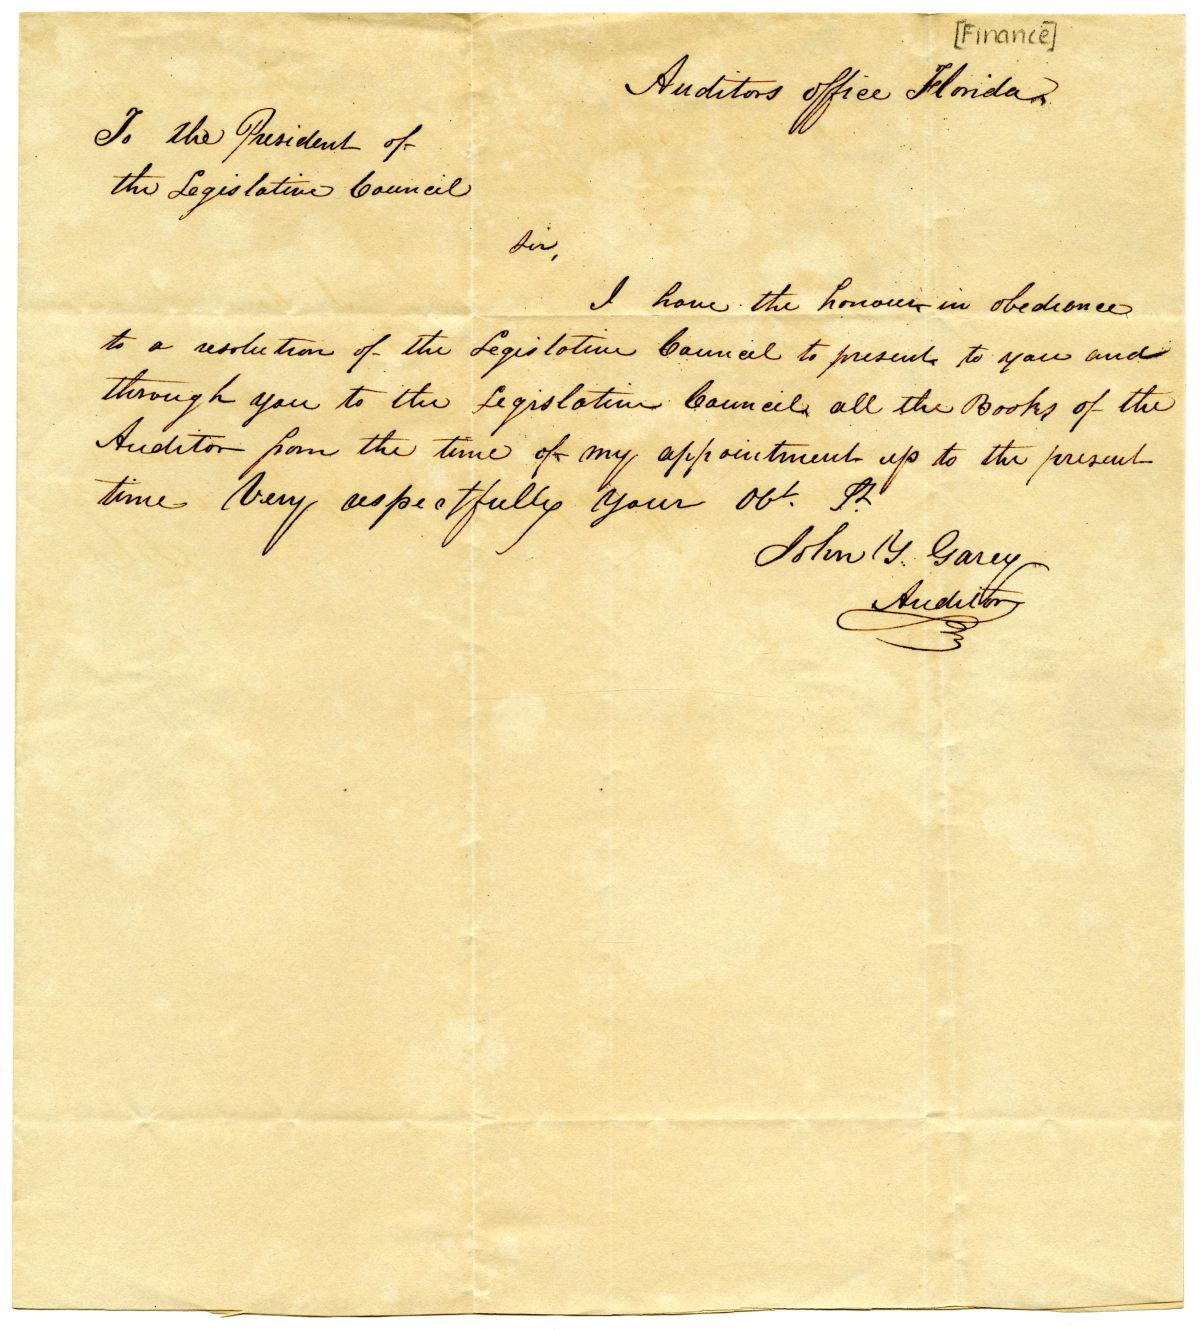 [Finance]
Auditors office Florida
To the President of
the Legislative Council
Sir,
I have the honour in obediance
to a resolution of the Legislative Council to present to you and
through you to the Legislative Council all the Books of the
Auditor from the time of my appointment up to the present
time Very respectfully your Obt. St
John Y. Garey
Auditor